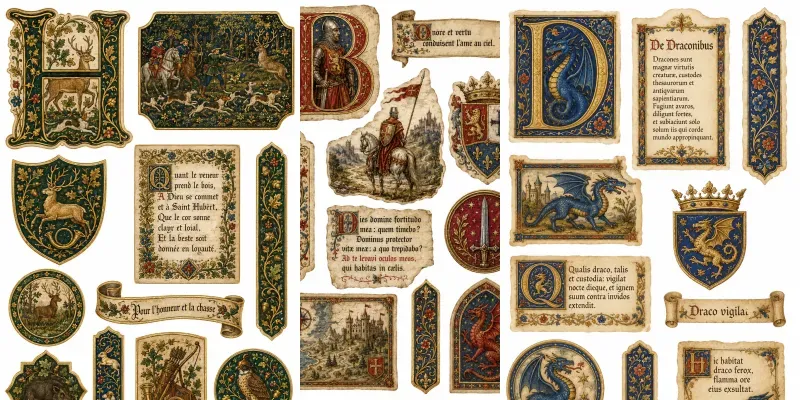 H
Quant le veneur
prend le bois,
A Dieu se commet
et à Saint Hubert,
Que le cor sonne
clayr et loial,
Et la beste soit
donnée en loyauté.
Pour l'honneur et la chasse
B
nore et vertu
conduisent l'ame au ciel.
Dies domine fortitudo
mea : quem timebo?
Dominus protector
vitæ meæ : a quo trepidabo?
Ad te levavi oculos meos,
qui habitas in cælis.
D
De Draconibus
Dracones sunt
magnæ virtutis
creaturæ, custodes
thesaurorum et
antiqvarum
sapientiarum.
Fugiunt avaros,
diligunt fortes,
et subiaciunt solo
solum iis qui corde
mundo appropinquant.
Qualis draco, talis
et custodia: vigilat
nocte dieque, et ignem
suum contra invidos
extendit.
Draco vigilat
Hic habitat
draco ferox,
flamma ore
eius exsultat.